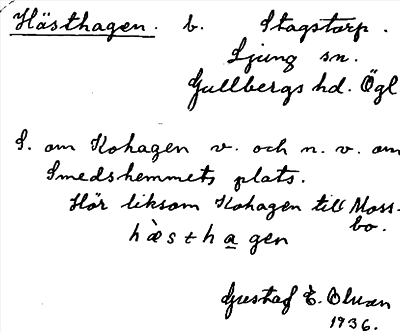 Hästhagen. b. Stagstorp.
Ljung sn.
Gullbergs hd. Ögl
S. om Kohagen v. och n. v. om
Smedshemmets plats.
Hör liksom Kohagen till Moss-
bo.
hàst-hagen
Gustaf E. Olsson
1936.